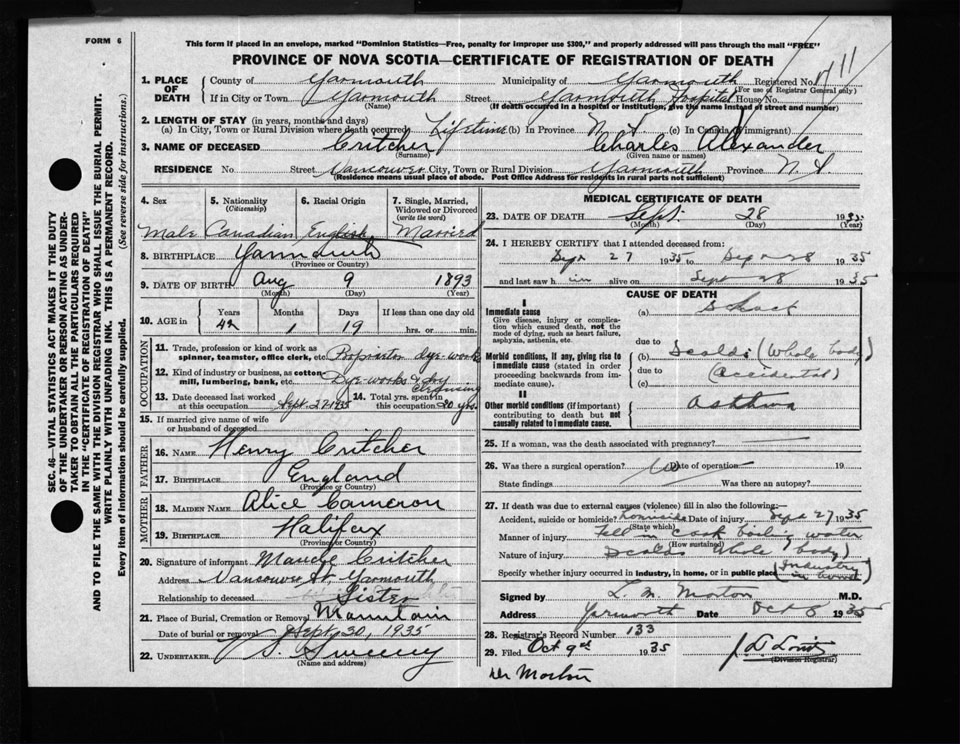 FORM 6
This form if placed in an envelope, marked "Dominion Statistics—Free, penalty for improper use $300," and properly addressed will pass through the mail "FREE"
PROVINCE OF NOVA SCOTIA—CERTIFICATE OF REGISTRATION OF DEATH
1. PLACE OF DEATH County of Yarmouth Municipality of Yarmouth Registered No.
(For use of Registrar General only)
If in City or Town Yarmouth Street Yarmouth Hospital House No.
(Name) (If death occurred in a hospital or institution, give the name instead of street and number)
2. LENGTH OF STAY (in years, months and days)
(a) In City, Town or Rural Division where death occurred Lifetime (b) In Province N. S. (c) In Canada (if immigrant)
3. NAME OF DECEASED Critcher Charles Alexander
(Surname) (Given name or names)
RESIDENCE No. Street Vancouver City, Town or Rural Division Yarmouth Province N. S.
(Residence means usual place of abode. Post Office Address for residents in rural parts not sufficient)
4. Sex 5. Nationality (Citizenship) 6. Racial Origin 7. Single, Married, Widowed or Divorced (write the word)
Male Canadian English Married
8. BIRTHPLACE Yarmouth
(Province or Country)
9. DATE OF BIRTH Aug 9 1893
(Month) (Day) (Year)
10. AGE in Years Months Days If less than one day old
42 1 19 hrs. or min.
OCCUPATION
11. Trade, profession or kind of work as spinner, teamster, office clerk, etc. Proprietor dye-works
12. Kind of industry or business, as cotton mill, lumbering, bank, etc. Dye-works & dry cleansing
13. Date deceased last worked at this occupation Sept. 27-1935 14. Total yrs. spent in this occupation 20 yrs.
15. If married give name of wife or husband of deceased
FATHER
16. NAME Henry Critcher
17. BIRTHPLACE England
(Province or Country)
MOTHER
18. MAIDEN NAME Alice Cameron
19. BIRTHPLACE Halifax
(Province or Country)
20. Signature of informant Maude Critcher
Address Vancouver St. Yarmouth
Relationship to deceased Sister
21. Place of Burial, Cremation or Removal Mountain
Date of burial or removal Sept. 30, 1935
22. UNDERTAKER Sweeny
(Name and address)
MEDICAL CERTIFICATE OF DEATH
23. DATE OF DEATH Sept. 28 1935
(Month) (Day) (Year)
24. I HEREBY CERTIFY that I attended deceased from:
Sept 27 1935 to Sept 28 1935
and last saw him alive on Sept 28 1935
CAUSE OF DEATH
I
Immediate cause (a) Shock
Give disease, injury or complication which caused death, not the mode of dying, such as heart failure, asphyxia, asthenia, etc.
due to
Morbid conditions, if any, giving rise to immediate cause (stated in order proceeding backwards from immediate cause).
(b) Scalds (Whole body)
due to (accidental)
(c)
II
Other morbid conditions (if important) contributing to death but not causally related to immediate cause.
asthma
25. If a woman, was the death associated with pregnancy?
26. Was there a surgical operation? No Date of operation 19
State findings Was there an autopsy?
27. If death was due to external causes (violence) fill in also the following:
Accident, suicide or homicide? Date of injury Sept 27 1935
(State which)
Manner of injury Fell in boiling water
(How sustained)
Nature of injury Scalds whole body)
Specify whether injury occurred in industry, in home, or in public place (Industry
Signed by L. M. Morton M.D.
Address Yarmouth Date Oct 8 1935
28. Registrar's Record Number 133
29. Filed Oct 9th 1935
(Division Registrar)
Dr Morton
SEC. 46—VITAL STATISTICS ACT MAKES IT THE DUTY OF THE UNDERTAKER OR PERSON ACTING AS UNDERTAKER TO OBTAIN ALL THE PARTICULARS REQUIRED IN THE "CERTIFICATE OF REGISTRATION OF DEATH"
AND TO FILE THE SAME WITH THE DIVISION REGISTRAR WHO SHALL ISSUE THE BURIAL PERMIT.
WRITE PLAINLY WITH UNFADING INK. THIS IS A PERMANENT RECORD.
Every item of information should be carefully supplied. (See reverse side for instructions.)